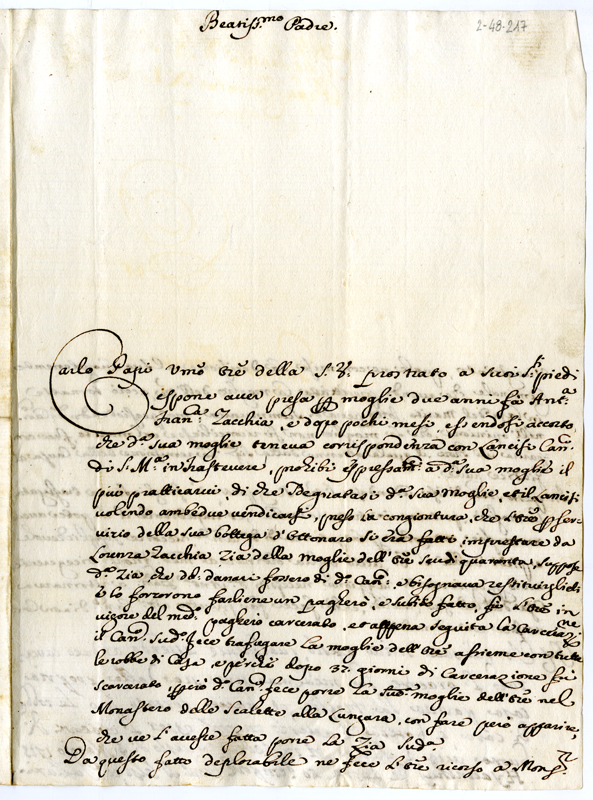 Beatiss.mo Padre.
2-48-217
Carlo Papi Umo Ore della S. V. prostrato a suoi S.i piedi
espone aver presa p moglie due anni fà Ant.a
Fran.a Zacchia, e dopo pochi mesi, essendosi accorto
che d.a sua moglie teneva corrispondenza con Lancisi Can.
di S. M.a in Trastevere, prohibì espressam.e a d.a sua moglie il
più pratticarvi, di che sdegnatasi d.a sua moglie, et il Lancisi
volendo ambedue vendicarsi, preso la congiontura, che l'Ore p ser-
vizio della sua bottega d'Ottonaro si era fatti imprestare da
Lorenza Zacchia Zia della moglie dell'Ore scudi quaranta, suppose
d.a Zia, che dd. danari fossero di d.o Can. e bisognava restituirglieli
e lo forzorono farliene un pagherò, e subito fatto, fù l'Ore in
vigore del med. pagherò carcerato, et appena seguita la Carceraz.ne
il Can. sud.o fece trafugare la moglie dell'Ore assieme con tutte
le robbe di Casa, e perchè dopo 37. giorni di Carcerazione fù
scarcerato d.o Can. fece porre la sud. moglie dell'Ore nel
Monastero delle Scalette alla Lungara, con fare però apparire,
che ve l'avesse fatta porre la Zia sud.a
Da questo fatto deplorabile ne fece l'Ore ricorso a Mons.r